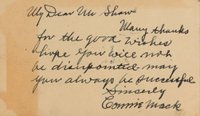 My Dear Mr Shaw
Many thanks
for the good wishes
hope you will not
be disapointed may
you always be successful
Sincerely
Connie Mack